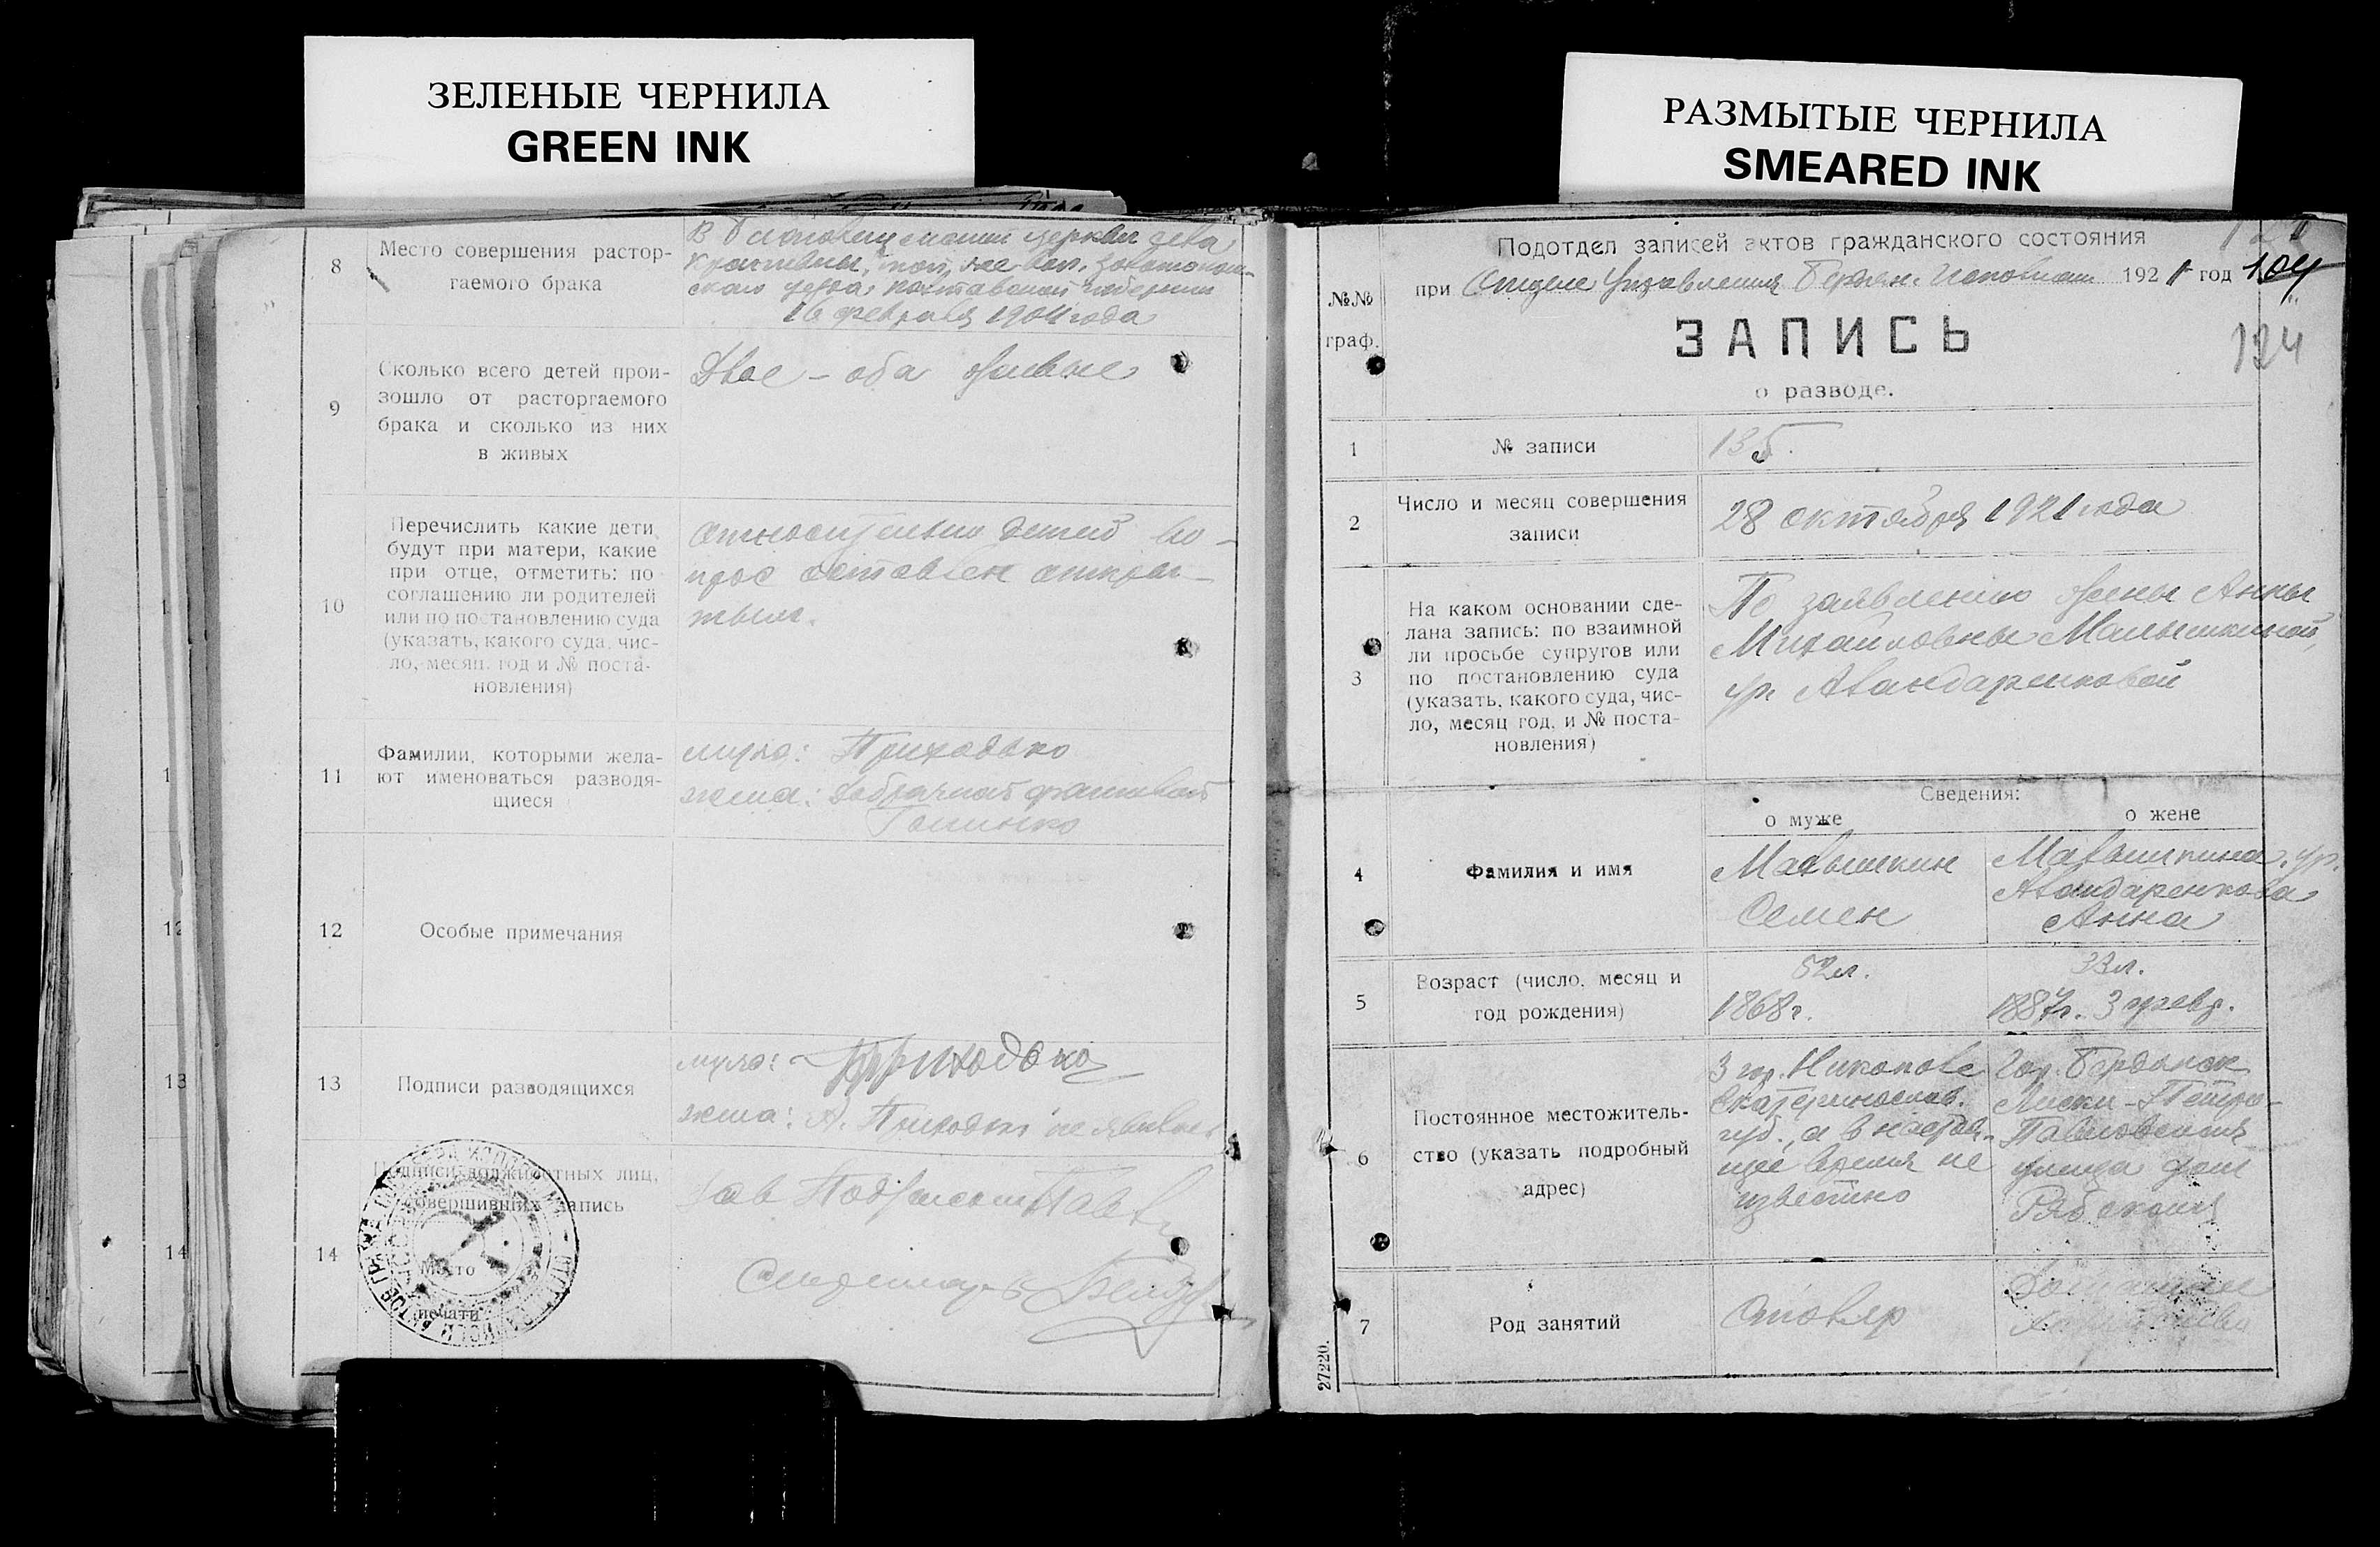 ЗЕЛЕНЫЕ ЧЕРНИЛА
GREEN INK
РАЗМЫТЫЕ ЧЕРНИЛА
SMEARED INK
8
Место совершения растор-
гаемого брака
церкви села
16 февраля 1904 года
9
Сколько всего детей прои-
зошло от расторгаемого
брака и сколько из них
в живых
Двое - оба живые
10
Перечислить какие дети
будут при матери, какие
при отце, отметить: по
соглашению ли родителей
или по постановлению суда
(указать, какого суда, чис-
ло, месяц, год и № поста-
новления)
Относительно детей во-
прос оставлен откры-
тым.
11
Фамилии, которыми жела-
ют именоваться разводя-
щиеся
мужа: Приходько
жена: добрачной фамилией
12
Особые примечания
13
Подписи разводящихся
мужа: Приходько
жена: А. Приходько не явилась
14
Подписи должностных лиц,
совершивших запись
Место
печати
Зав Подотделом
Секретарь
Подотдел записей актов гражданского состояния
при Отделе Управления Бердян. Исполкома 1921 год
104
124
№№
граф.
ЗАПИСЬ
о разводе.
1
№ записи
135.
2
Число и месяц совершения
записи
28 октября 1921 года
3
На каком основании сде-
лана запись: по взаимной
ли просьбе супругов или
по постановлению суда
(указать, какого суда, чис-
ло, месяц год, и № поста-
новления)
По заявлению жены Анны
Михайловны Малышкиной,
ур. Авандаренковой
Сведения:
о муже
о жене
4
Фамилия и имя
Малышкин
Семен
Малышкина, ур.
Авандаренкова
Анна
5
Возраст (число, месяц и
год рождения)
52 л.
1868 г.
33 л.
1887 г. 3 февр.
6
Постоянное местожитель-
ство (указать подробный
адрес)
гор. Никополе
Екатеринослав.
губ., а в настоя-
щее время не
известно
Гор. Бердянск
Лиски - Петро-
Павловская
улица дом
Рябского
7
Род занятий
Столяр
Домашнее
27220.